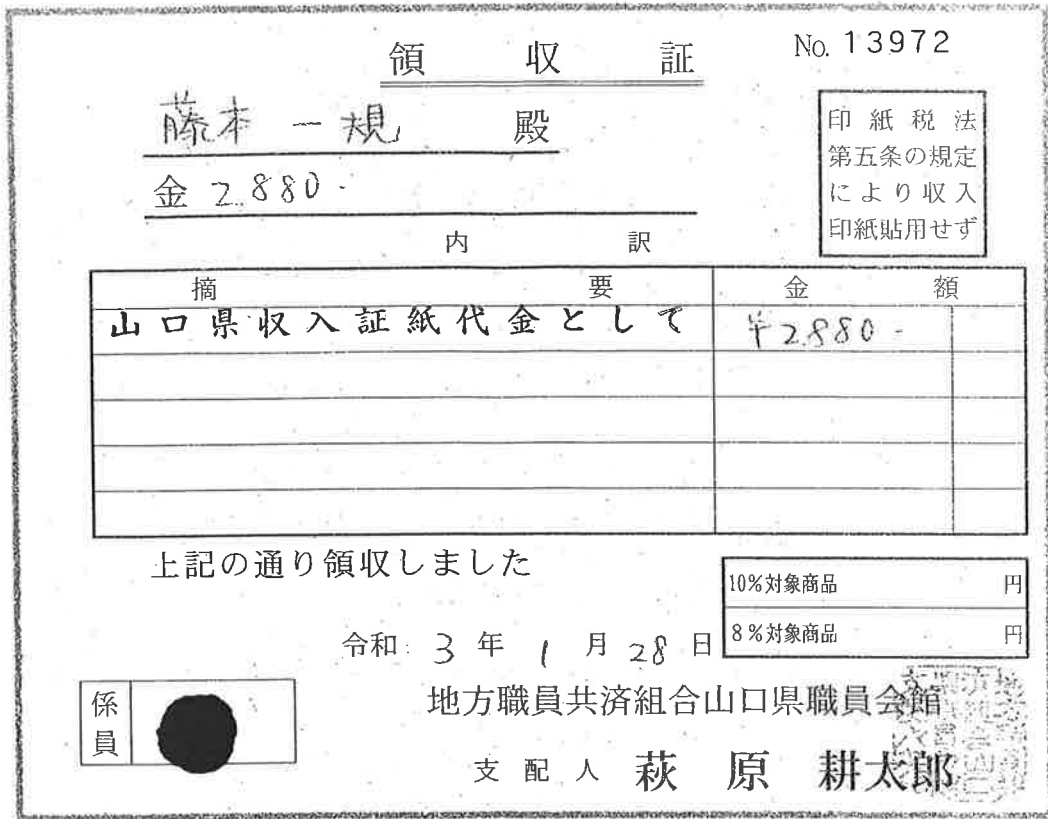 領収証
No. 13972
藤本 一規 殿
金 2,880.
印紙税法
第五条の規定
により収入
印紙貼用せず
内訳
摘要 金額
山口県収入証紙代金として ¥2,880.
上記の通り領収しました
10%対象商品 円
8%対象商品 円
令和 3年 1月 28日
地方職員共済組合山口県職員会館
係員
支配人 萩原 耕太郎